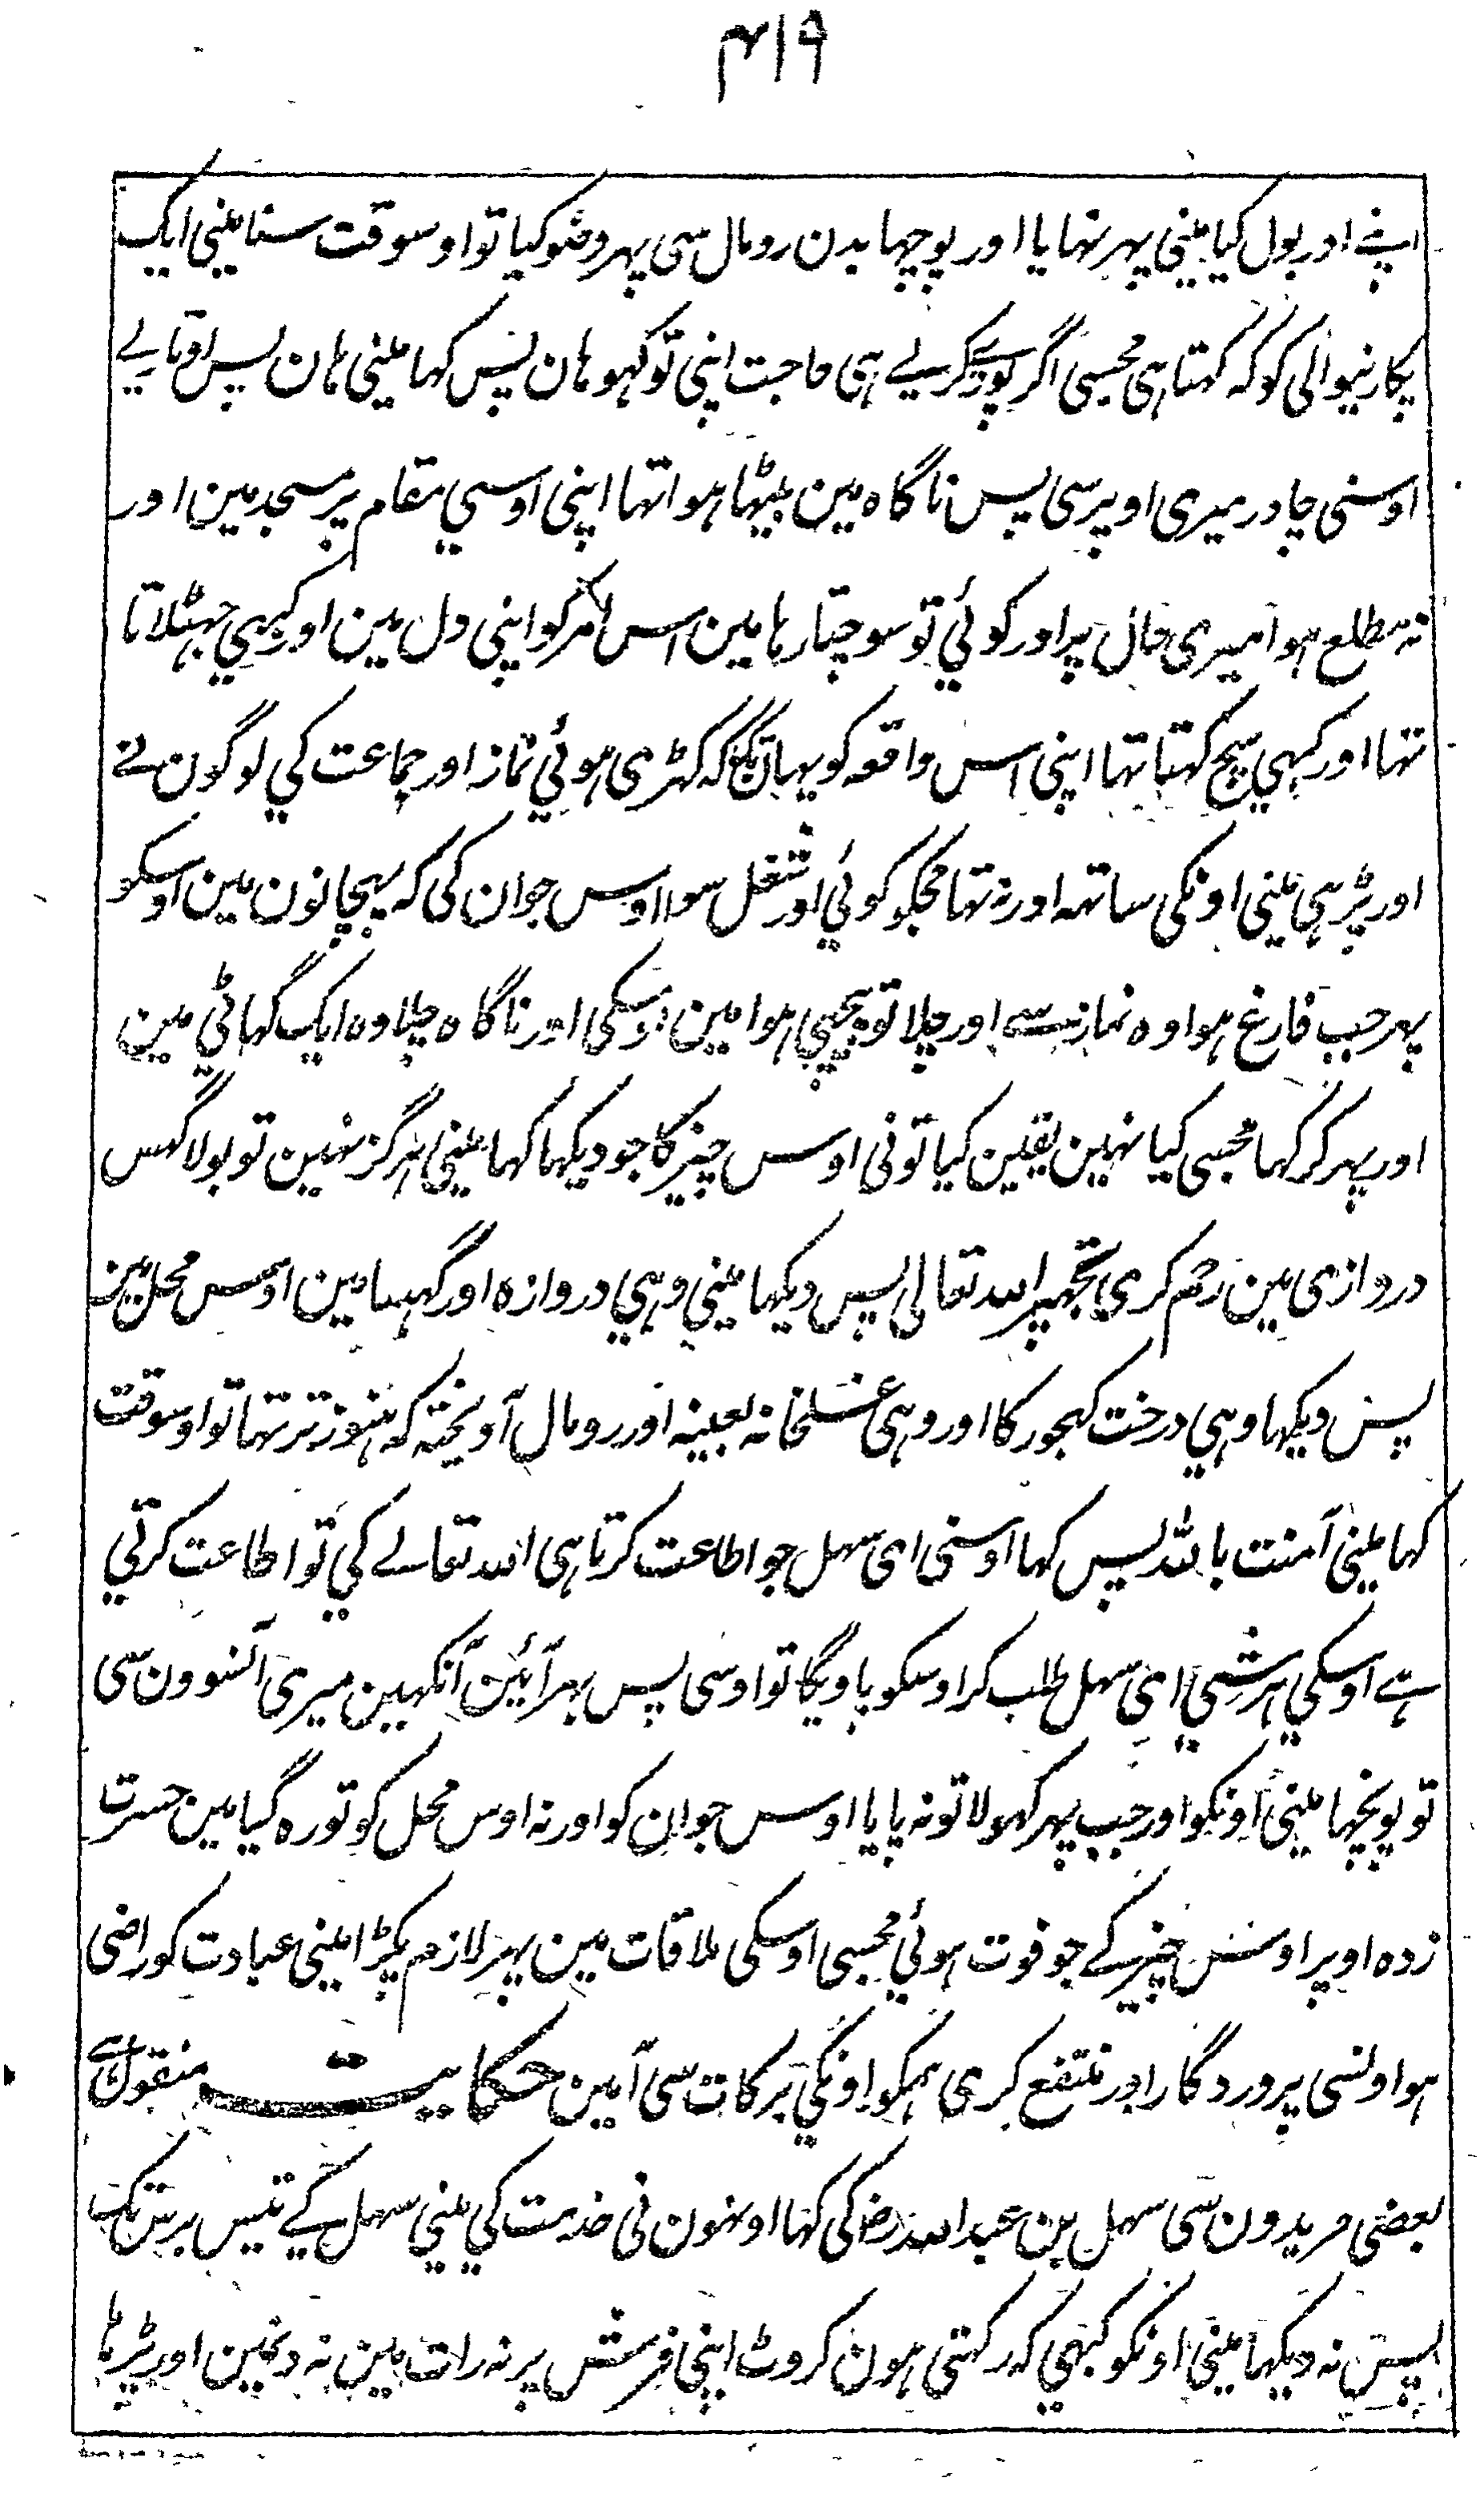 ۴۱۹
اپنے اور بول کیا مینی پہر نہایا اور پوچہا بدن رومال سی پہر وضو کیا تو اوسوقت سنا مینی ایک
پکارنیوالی کو کہ کہتا ہی مجسی اگر پوری کرلے ہی حاجت اپنی تو کہو ہان پس کہا مینی ہان پس اوتارلے
اوسنی چادر میری اوپر سی پس ناگاہ مین بیٹہا ہوا تہا اپنی اوسی مقام پر مسجد مین اور
نہ مطلع ہوا میری حال پر اور کوئی تو سوچتا رہا مین اس امر کو اپنی دل مین اور کبہی جہٹلاتا
تہا اور کبہی سچ کہتا تہا اپنی اس واقعہ کو یہانتک کہ کہڑی ہوئی نماز اور جماعت کی لوگون نے
اور پڑہی مینی اونکی ساتہہ اور نہ تہا مجکو کوئی اور شغل سوا اوس جوان کی کہ پہچانون مین اوسکو
پہر جب فارغ ہوا وہ نماز سے اور چلا تو پیچہی ہوا مین اوسکی اور ناگاہ چلا وہ ایک گہاٹی مین
اور پہر کر کہا مجسی کیا نہین یقین کیا تونی اوس چیز کا جو دیکہا کہا مینی ہرگز نہین تو بولا گہس
دروازی مین رحم کری تجہپر اللہ تعالی پس دیکہا مینی وہی دروازہ اور گہسا مین اوس محل مین
پس دیکہا وہی درخت کہجور کا اور وہی غسلخانہ بعینہ اور رومال آویختہ کہ ہنوز تر تہا تو اوسوقت
کہا مینی آمنت باللہ پس کہا اوسنی ای سہل جو اطاعت کرتا ہی اللہ تعالے کی تو اطاعت کرتی
ہے اوسکی ہر شی ای سہل طلب کر اوسکو پاویگا تو اوسی پس بہر آئین آنکہین میری آنسوون سی
تو پونچہا مینی اونکو اور جب پہر کہولا تو نہ پایا اوس جوان کو اور نہ اوس محل کو تو رہ گیا مین حسرت
زدہ اوپر اوس چیز کے جو فوت ہوئی مجسی اوسکی ملاقات مین پہر لازم پکڑا مینی عبادت کو راضی
ہوا ولسی پروردگار اور منتفع کری ہمکو اونکی برکات سی آمین حکایت منقول ہے
بعضی مریدون سی سہل بن عبداللہ رض کی کہا اونہون نی خدمت کی مینی سہل کے تیس برس تک
پس نہ دیکہا مینی اونکو کبہی کہ رکہتی ہون کروٹ اپنی فرش پر نہ رات مین نہ دنمین اور پڑہا